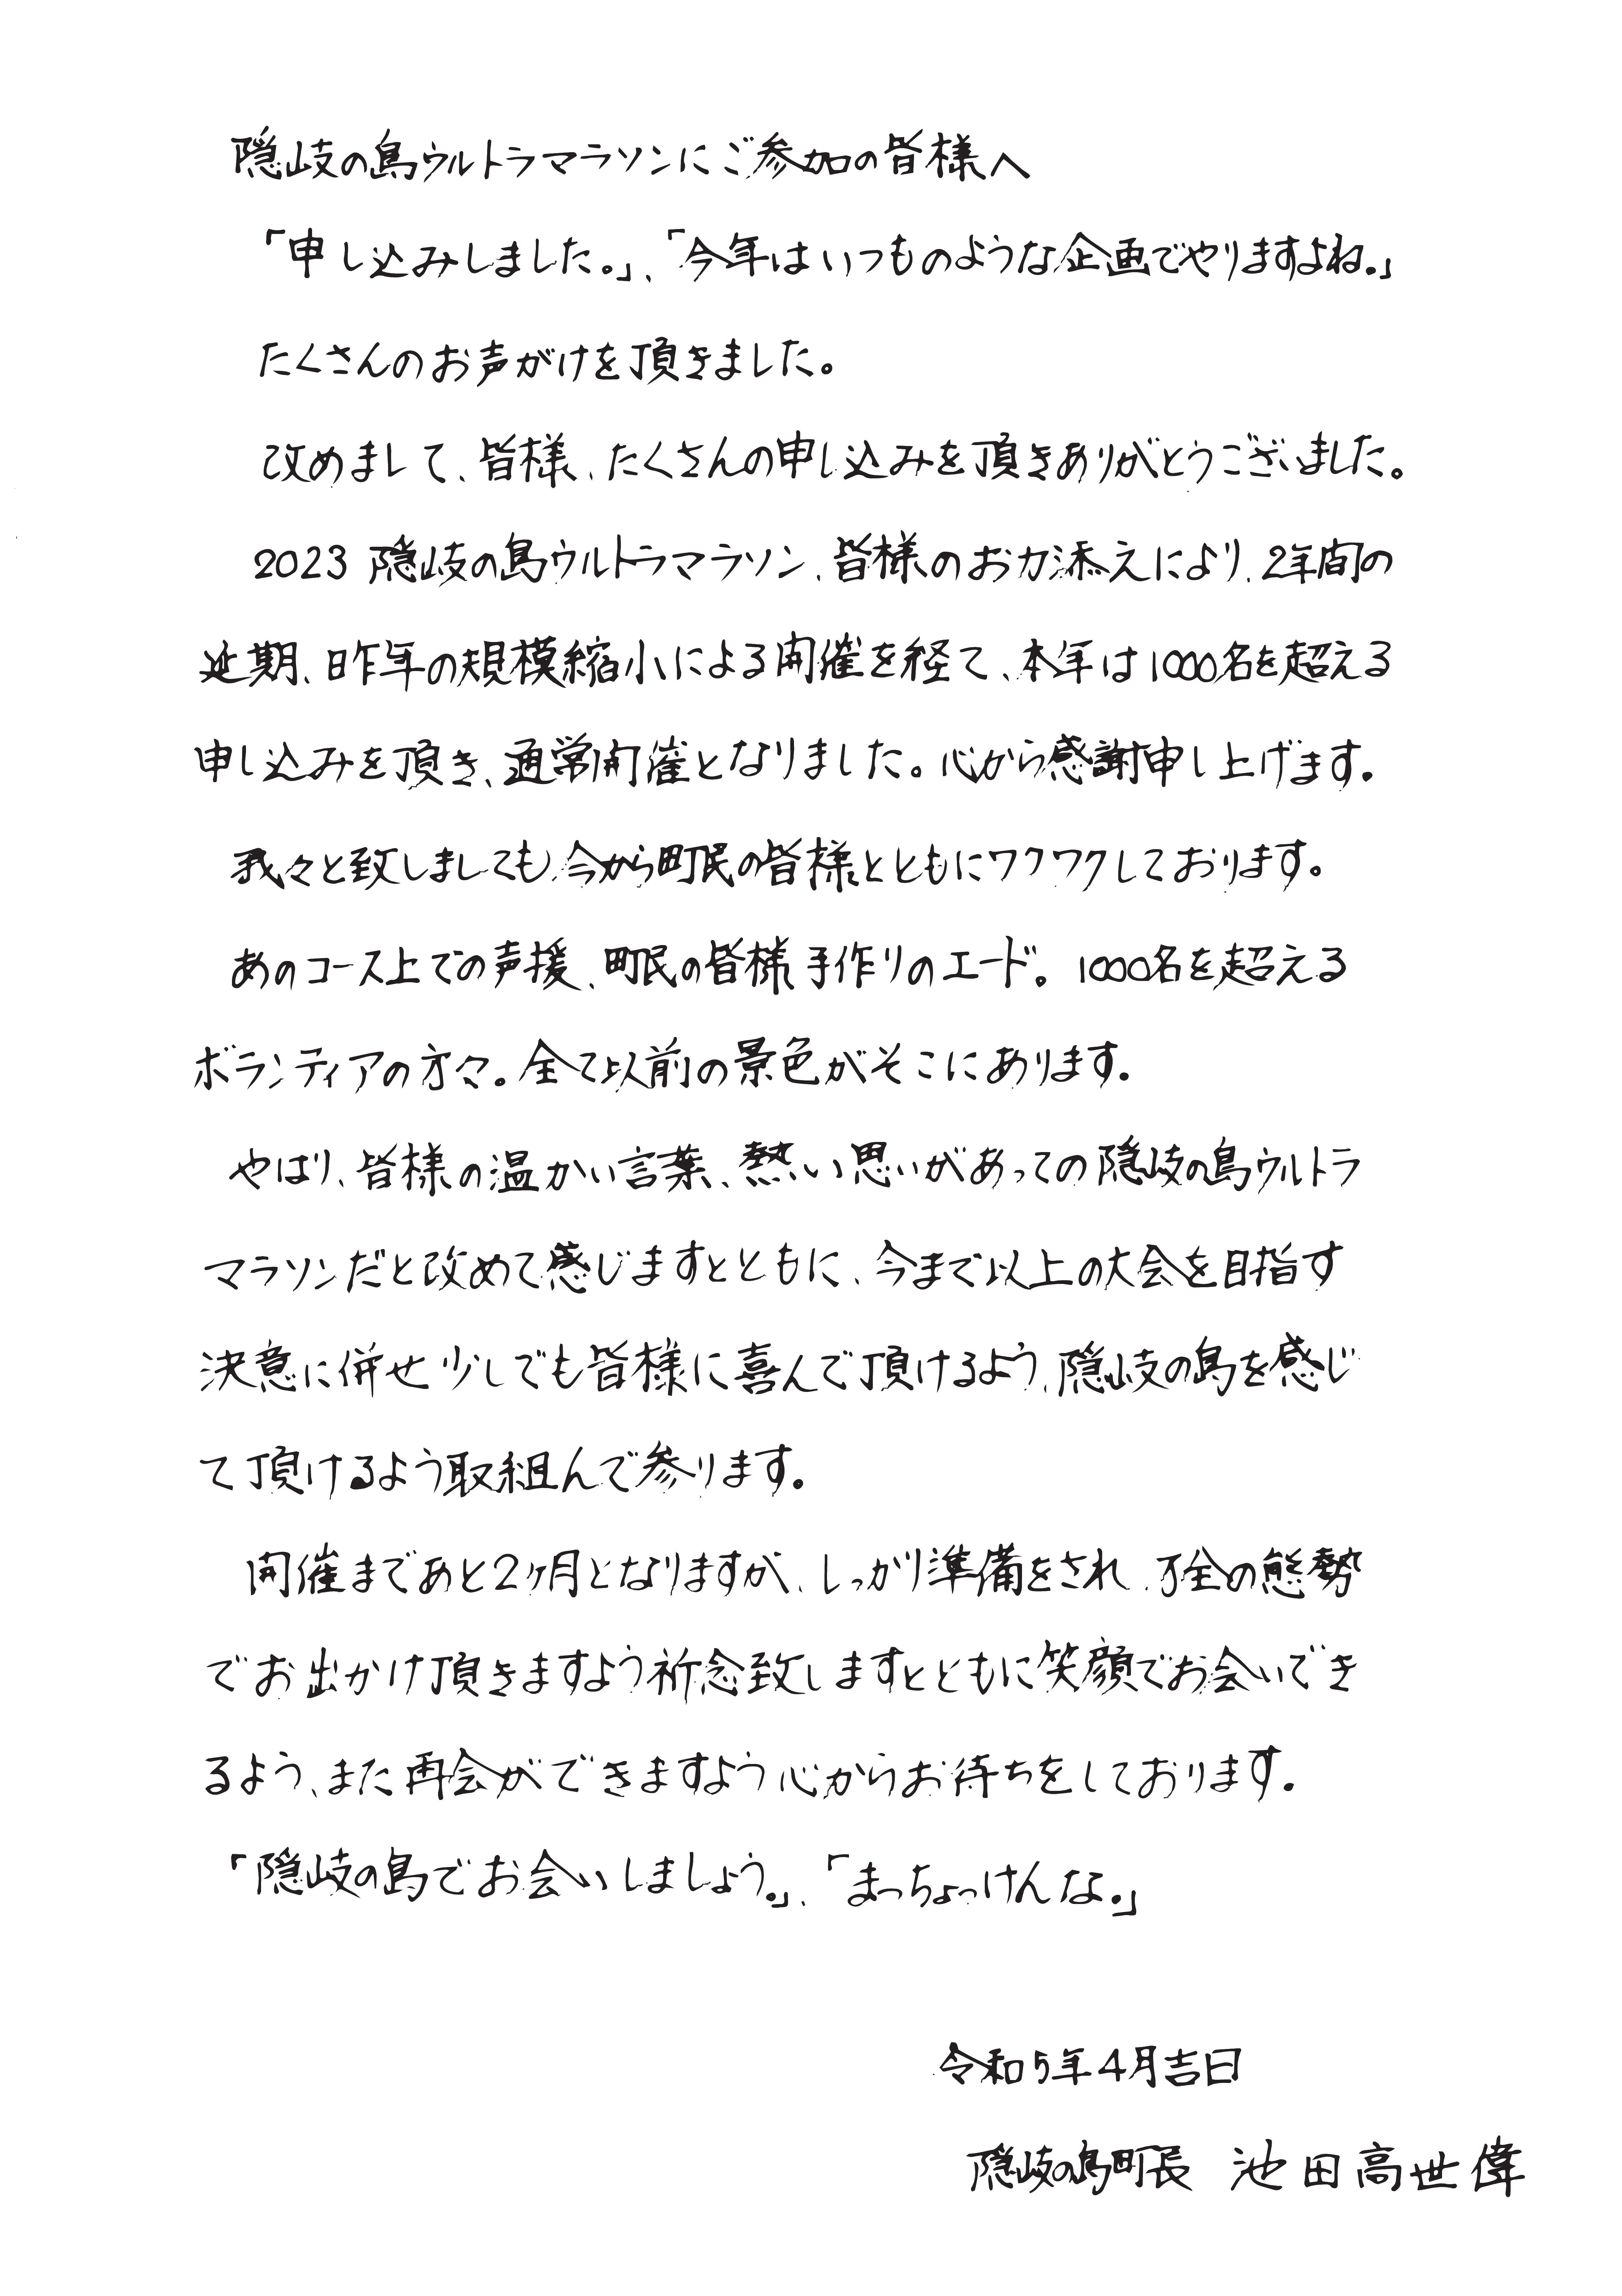 隠岐の島ウルトラマラソンにご参加の皆様へ
「申し込みしました。」、「今年はいつものような企画でやりますよね。」
たくさんのお声がけを頂きました。
改めまして、皆様、たくさんの申し込みを頂きありがとうございました。
2023 隠岐の島ウルトラマラソン、皆様のお力添えにより、2年間の
延期、昨年の規模縮小による開催を経て、本年は1000名を超える
申し込みを頂き、通常開催となりました。心から感謝申し上げます。
我々と致しましても、今から町民の皆様とともにワクワクしております。
あのコース上での声援、町民の皆様手作りのエード。1000名を超える
ボランティアの方々。全て以前の景色がそこにあります。
やはり、皆様の温かい言葉、熱い思いがあっての隠岐の島ウルトラ
マラソンだと改めて感じますとともに、今まで以上の大会を目指す
決意に併せ少しでも皆様に喜んで頂けるよう、隠岐の島を感じ
て頂けるよう取組んで参ります。
開催まであと2ヶ月となりますが、しっかり準備をされ、万全の態勢
でお出かけ頂きますよう祈念致しますとともに笑顔でお会いでき
るよう、また再会ができますよう心からお待ちをしております。
「隠岐の島でお会いしましょう。」、「まっちょっけんな。」
令和5年4月吉日
隠岐の島町長 池田高世偉